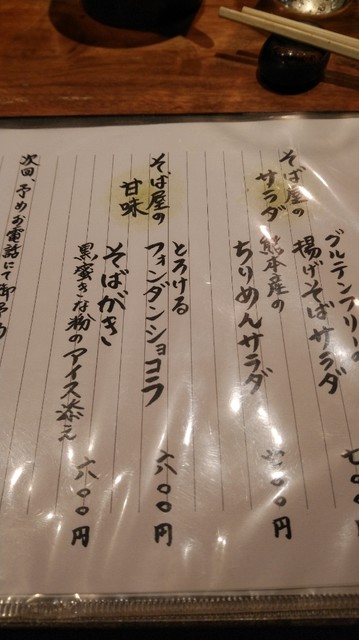 そば屋の
サラダ
グルテンフリーの
揚げそばサラダ
熊本産の
ちりめんサラダ
円
そば屋の
甘味
とろける
フォンダンショコラ
六〇〇円
そばがき
黒蜜きな粉のアイス添え
六〇〇円
次回、予めお電話にて御予約